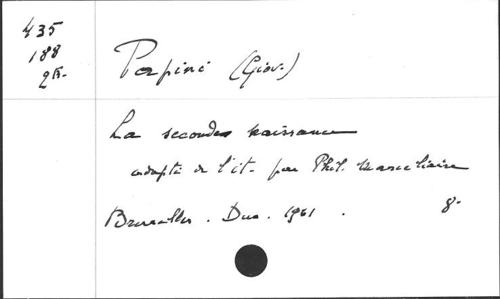 435
188
2B.
Papini (Giov.)
La seconde naissance
adapté de l'it. par Phil. Marcelliaire
Bruxelles. Duc. 1961. 8.